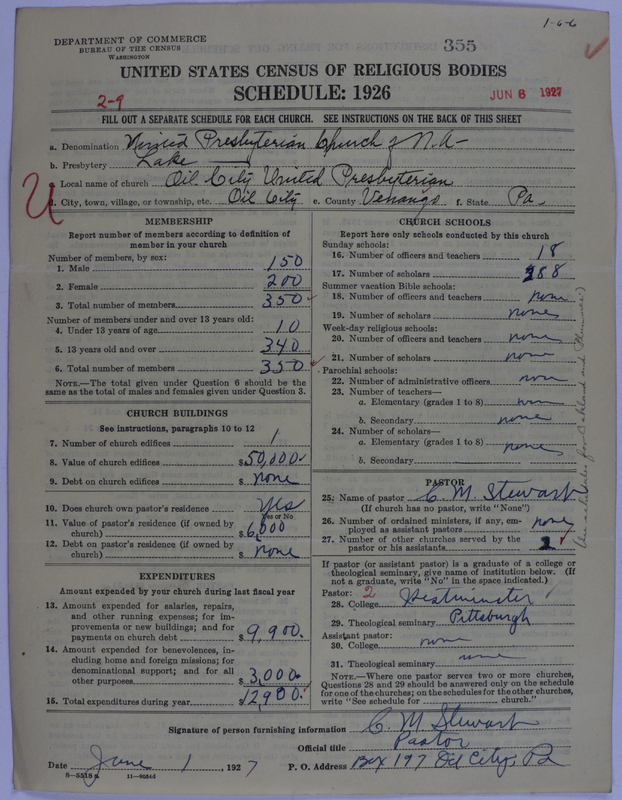 1-6-6
DEPARTMENT OF COMMERCE
BUREAU OF THE CENSUS
WASHINGTON
355
UNITED STATES CENSUS OF RELIGIOUS BODIES
SCHEDULE: 1926
2-9
JUN 6 1927
FILL OUT A SEPARATE SCHEDULE FOR EACH CHURCH. SEE INSTRUCTIONS ON THE BACK OF THIS SHEET
a. Denomination United Presbyterian Church of N.A-
b. Presbytery Lake
c. Local name of church Oil City United Presbyterian
U
d. City, town, village, or township, etc. Oil City e. County Venango f. State Pa-
MEMBERSHIP
Report number of members according to definition of
member in your church
Number of members, by sex:
1. Male 150
2. Female 200
3. Total number of members 350
Number of members under and over 13 years old:
4. Under 13 years of age 10
5. 13 years old and over 340
6. Total number of members 350
NOTE.—The total given under Question 6 should be
same as the total of males and females given under Question 3.
CHURCH BUILDINGS
See instructions, paragraphs 10 to 12
7. Number of church edifices 1
8. Value of church edifices $50,000
9. Debt on church edifices $none
10. Does church own pastor's residence Yes
Yes or No
11. Value of pastor's residence (if owned by
church) $6,000
12. Debt on pastor's residence (if owned by
church) $none
EXPENDITURES
Amount expended by your church during last fiscal year
13. Amount expended for salaries, repairs,
and other running expenses; for im-
provements or new buildings; and for
payments on church debt $9,900.
14. Amount expended for benevolences, in-
cluding home and foreign missions; for
denominational support; and for all
other purposes $3,000.
15. Total expenditures during year $12,900.
CHURCH SCHOOLS
Report here only schools conducted by this church
Sunday schools:
16. Number of officers and teachers 18
17. Number of scholars 288
Summer vacation Bible schools:
18. Number of officers and teachers none
19. Number of scholars none
Week-day religious schools:
20. Number of officers and teachers none
21. Number of scholars none
Parochial schools:
22. Number of administrative officers none
23. Number of teachers—
a. Elementary (grades 1 to 8) none
b. Secondary none
24. Number of scholars—
a. Elementary (grades 1 to 8) none
b. Secondary
PASTOR
25. Name of pastor C. M. Stewart
(If church has no pastor, write "None")
26. Number of ordained ministers, if any, em-
ployed as assistant pastors none
27. Number of other churches served by the
pastor or his assistants
If pastor (or assistant pastor) is a graduate of a college or
theological seminary, give name of institution below. (If
not a graduate, write "No" in the space indicated.)
Pastor: 2
28. College Westminster
29. Theological seminary Pittsburgh
Assistant pastor:
30. College none
31. Theological seminary none
NOTE.—Where one pastor serves two or more churches,
Questions 28 and 29 should be answered only on the schedule
for one of the churches; on the schedules for the other churches,
write "See schedule for church."
Signature of person furnishing information C. M. Stewart
Official title Pastor
Date June 1, 1927 P. O. Address Box 197 Oil City, Pa
8-5518a 11-9084d